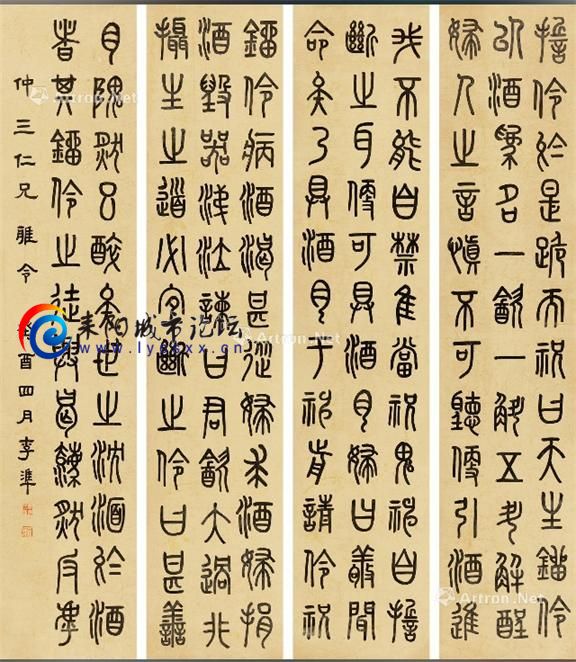 誓伶於是跪而祝曰天生鎦伶
以酒為名一飲一斛五斗解酲
婦人之言慎不可聽便引酒進
我不能自禁隹當祝鬼神自誓
斷之耳便可具酒肉婦曰敬聞
命矣乃具酒肉于神前請伶祝
鎦伶病酒渴甚從婦求酒婦捐
酒毀器涕泣諫曰君飲大過非
攝生之道必宜斷之伶曰甚善
肉隗然已醉矣世之沈湎於酒
者其鎦伶之徒與曷然反
仲三仁兄雅令 癸酉四月李準
耒阳城市论坛
Artron.Net
Artron.Net
Artron.Net
Artron.Net